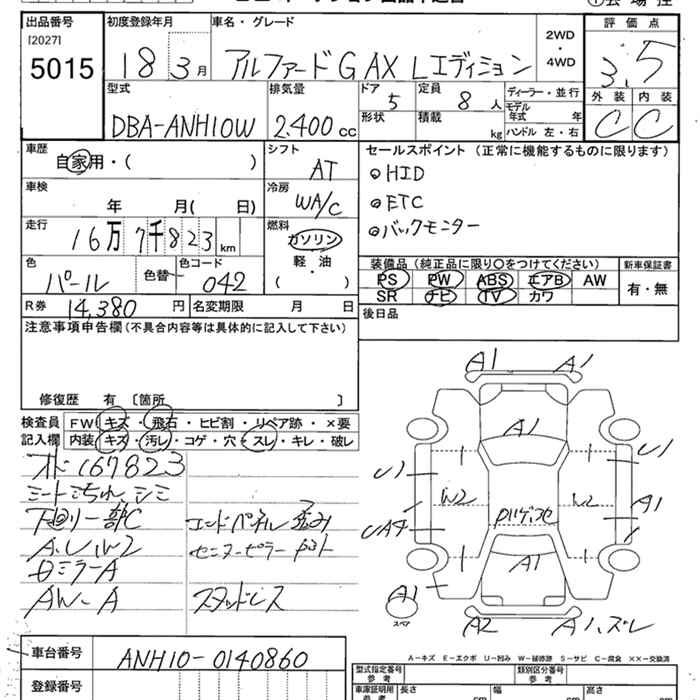 出品番号 初度登録年月 車名・グレード 評価点
[2027]
5015 18 3月 アルファードG AX Lエディション 2WD・4WD 3.5
外装 内装
C C
型式 排気量 ドア 定員 ディーラー・並行
DBA-ANH10W 2.400cc 5 8人 モデル年式 年
形状 積載 kg ハンドル 左・右
車歴 シフト セールスポイント (正常に機能するものに限ります)
自家用・( ) AT
◎HID
車検 冷房
年 月( 日) WA/C
◎ETC
◎バックモニター
走行 燃料
16万7千823km ガソリン
軽・油
( )
色 色替 色コード
パール 042
装備品 (純正品に限り○をつけてください) 新車保証書
PS PW ABS エアB AW 有・無
SR ナビ TV カワ
R券 14,380円 名変期限 月 日
後日品
注意事項申告欄 (不具合内容等は具体的に記入して下さい)
修復歴 有 〔箇所 〕
検査員 FW キズ・飛石・ヒビ割・リペア跡・×要
記入欄 内装 キズ・汚レ・コゲ・穴・スレ・キレ・破レ
メーター 167823
シートこげ シミ
下回り一部C エンドパネル歪み
センターピラー
ロミラーA
AW-A スタッドレス
A1 A1
A1
U1 U1
W2 W2
A1
A1
A1
スペア
A2 A1、ズレ
A-キズ E-エクボ U-凹み W-補修跡 S-サビ C-腐食 ××-交換済
車台番号 ANH10-0140860
型式指定番号 参考 類別区分番号 参考
登録番号
車庫証明用 参考 長さ cm 幅 cm 高 cm